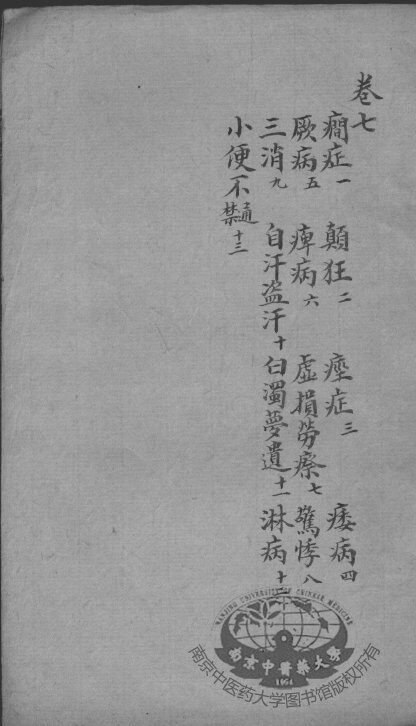 卷七
癇症一 顛狂二 痙症三 痿病四
厥病五 痺病六 虛損勞瘵七 驚悸八
三消九 自汗盗汗十 白濁夢遺十一 淋病十二
小便不通禁十三
NANJING UNIVERSITY OF CHINESE MEDICINE
南京中醫藥大學
1954
南京中医药大学图书馆版权所有